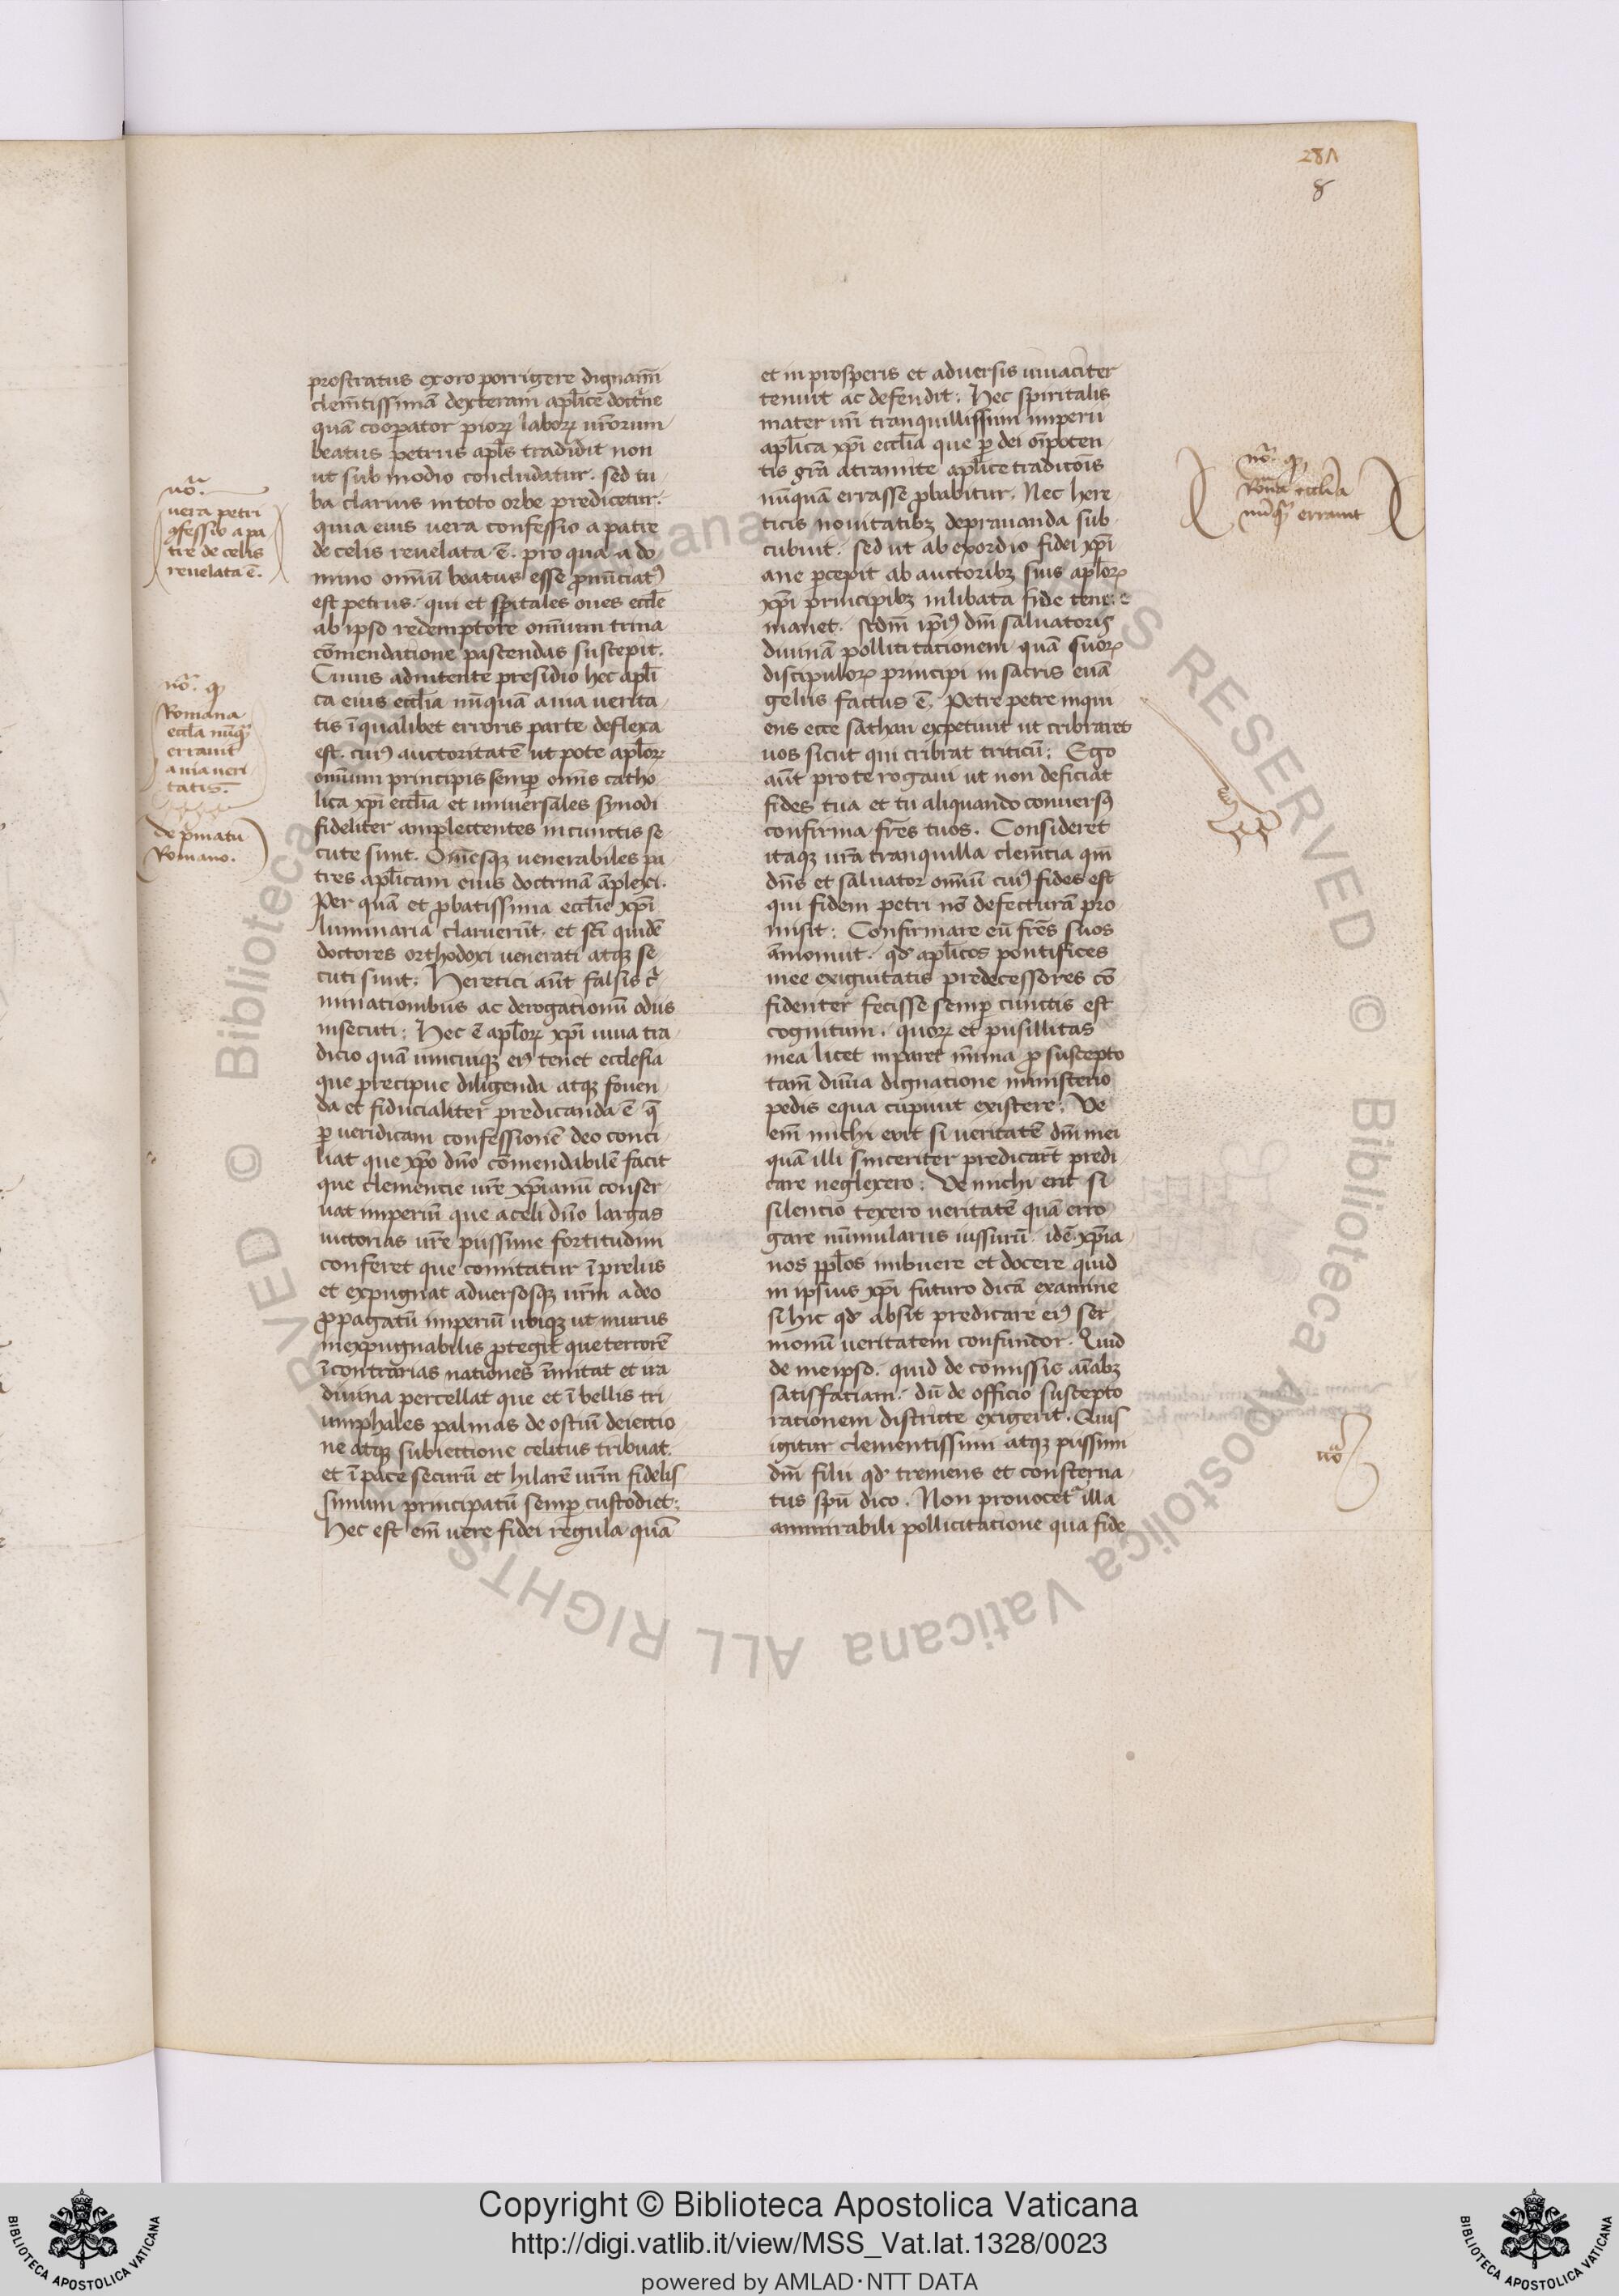 281
8
prostratus exoro porrigere dignam̄
clem̄tissimā dexteram apl̄ice doctr̄ine
quā cooꝑator pioꝝ laboꝝ vr̄orum
beatus petrus apl̄s tradidit non
ut sub modio concludatur. sed tu
ba clarius in toto orbe predicetur.
quia eius uera confessio a patre
de celis reuelata ē. pro qua a do
mino omniū beatus esse ꝓnūciatꝰ
est petrus. qui et sp̄itales oues eccl̄e
ab ipso redemptore omnium trina
cōmendatione pascendas suscepit.
Cuius adnitente presidio hec apl̄i
ca eius eccl̄ia nūquā a uia uerita
tis ī qualibet erroris parte deflexa
est. cuiꝰ auctoritatē ut pote apl̄oꝝ
omnium principis semꝑ om̄is catho
lica xp̄i eccl̄ia et uniuersales synodi
fideliter amplectentes in cunctis se
cute sunt. Om̄esqꝫ uenerabiles pa
tres apl̄icam eius doctrinā āplexi.
Per quā et ꝓbatissima eccl̄ie xp̄i
luminaria claruerūt. et sc̄i quidē
doctores orthodoxi uenerati atqꝫ se
cuti sunt. Heretici aūt falsis cr̄i
minationibus ac derogationū odiis
insecuti: Hec ē apl̄oꝝ xp̄i uiua tra
dicio quā unicuiqꝫ eiꝰ tenet ecclesia
que precipue diligenda atqꝫ fouen
da et fiducialiter predicanda ē q̄
ꝑ ueridicam confessionē deo conci
liat que xp̄o dn̄o cōmendabilē facit
que clementie vr̄e xp̄ianū conser
uat imperiū que a celi dn̄o largas
uictorias vr̄e piissime fortitudini
conferet que comitatur ī preliis
et expugnat aduersosqꝫ vr̄m a deo
ꝓpagatū imperiū ubiqꝫ ut murus
inexpugnabilis ꝓtegit que terrorē
ī contrarias nationes īmitat et ira
diuina percellat que et ī bellis tri
umphales palmas de ostiū deiectio
ne atqꝫ subiectione celitus tribuat.
et ī pace securū et hilarē vr̄m fidelis
simum principatū semꝑ custodiet:
Hec est em̄ uere fidei regula quā
et in prosperis et aduersis uiuaciter
tenuit ac defendit: Hec spiritalis
mater vr̄i tranquillissimi imperii
apl̄ica xp̄i eccl̄ia que ꝑ dei om̄ipoten
tis gr̄a a tramite apl̄ice traditōis
nūquā errasse ꝓbabitur. Nec here
ticis nouitatibꝫ deprauanda sub
cubuit. sed ut ab exordio fidei xp̄i
ane ꝑcepit ab auctoribꝫ suis apl̄oꝝ
xp̄i principibꝫ inlibata fide tene
manet. scdm̄ ip̄iꝰ dn̄i saluatoris
diuinā polliti tacionem quā suoꝝ
discipuloꝝ principi in sacris euā
geliis factus ē. Petre petre inqui
ens ecce sathan expetiuit ut cribraret
uos sicut qui cribrat triticū: Ego
aūt pro te rogaui ut non deficiat
fides tua et tu aliquando conuersꝰ
confirma fr̄es tuos. Consideret
itaqꝫ vr̄a tranquilla clem̄tia qm̄
dn̄s et saluator omniū cuiꝰ fides est
qui fidem petri nō defecturā pro
misit: Confirmare eū fr̄es suos
āmonuit. qđ apl̄icos pontifices
mee exiguitatis predecessores cō
fidenter fecisse semꝑ cunctis est
cognitum. quoꝝ et pusillitas
mea licet inparet nīma ꝓ suscepto
tam̄ diuīa dignatione ministerio
pedis equa cupiuit existere: Ve
em̄ michi erit si ueritatē dn̄i mei
quā illi sinceriter predicart̄ predi
care neglexero: Ve michi erit si
silencio texero ueritatē quā erro
gare nūmulariis iussurū idē xp̄ia
nos ppl̄os imbuere et docere quid
in ipsius xp̄i futuro dicā examine
si hic qđ absit predicare eiꝰ ser
monū ueritatem confundor. Quid
de me ipso. quid de cōmissis aīabꝫ
satisfaciam. dū de officio suscepto
rationem districte exigerit. Quis
igitur clementissimi atqꝫ piissimi
dn̄i filii qđ tremens et consterna
tus spū dico. Non prouocetᵉ illa
ammirabili pollicitacione qua fide
nō.
uera petri
ꝯfessio a pa
tre de celis
reuelata ē.
nō. ꝙ
Romana
eccl̄a nūqꝫ
errauit
a uia ueri
tatis.
de p̄matu
Romano.
nō. ꝙ
Romā eccl̄ia
nūqꝫ errauit
nō
Copyright © Biblioteca Apostolica Vaticana
http://digi.vatlib.it/view/MSS_Vat.lat.1328/0023
powered by AMLAD·NTT DATA
BIBLIOTECA APOSTOLICA VATICANA
BIBLIOTECA APOSTOLICA VATICANA